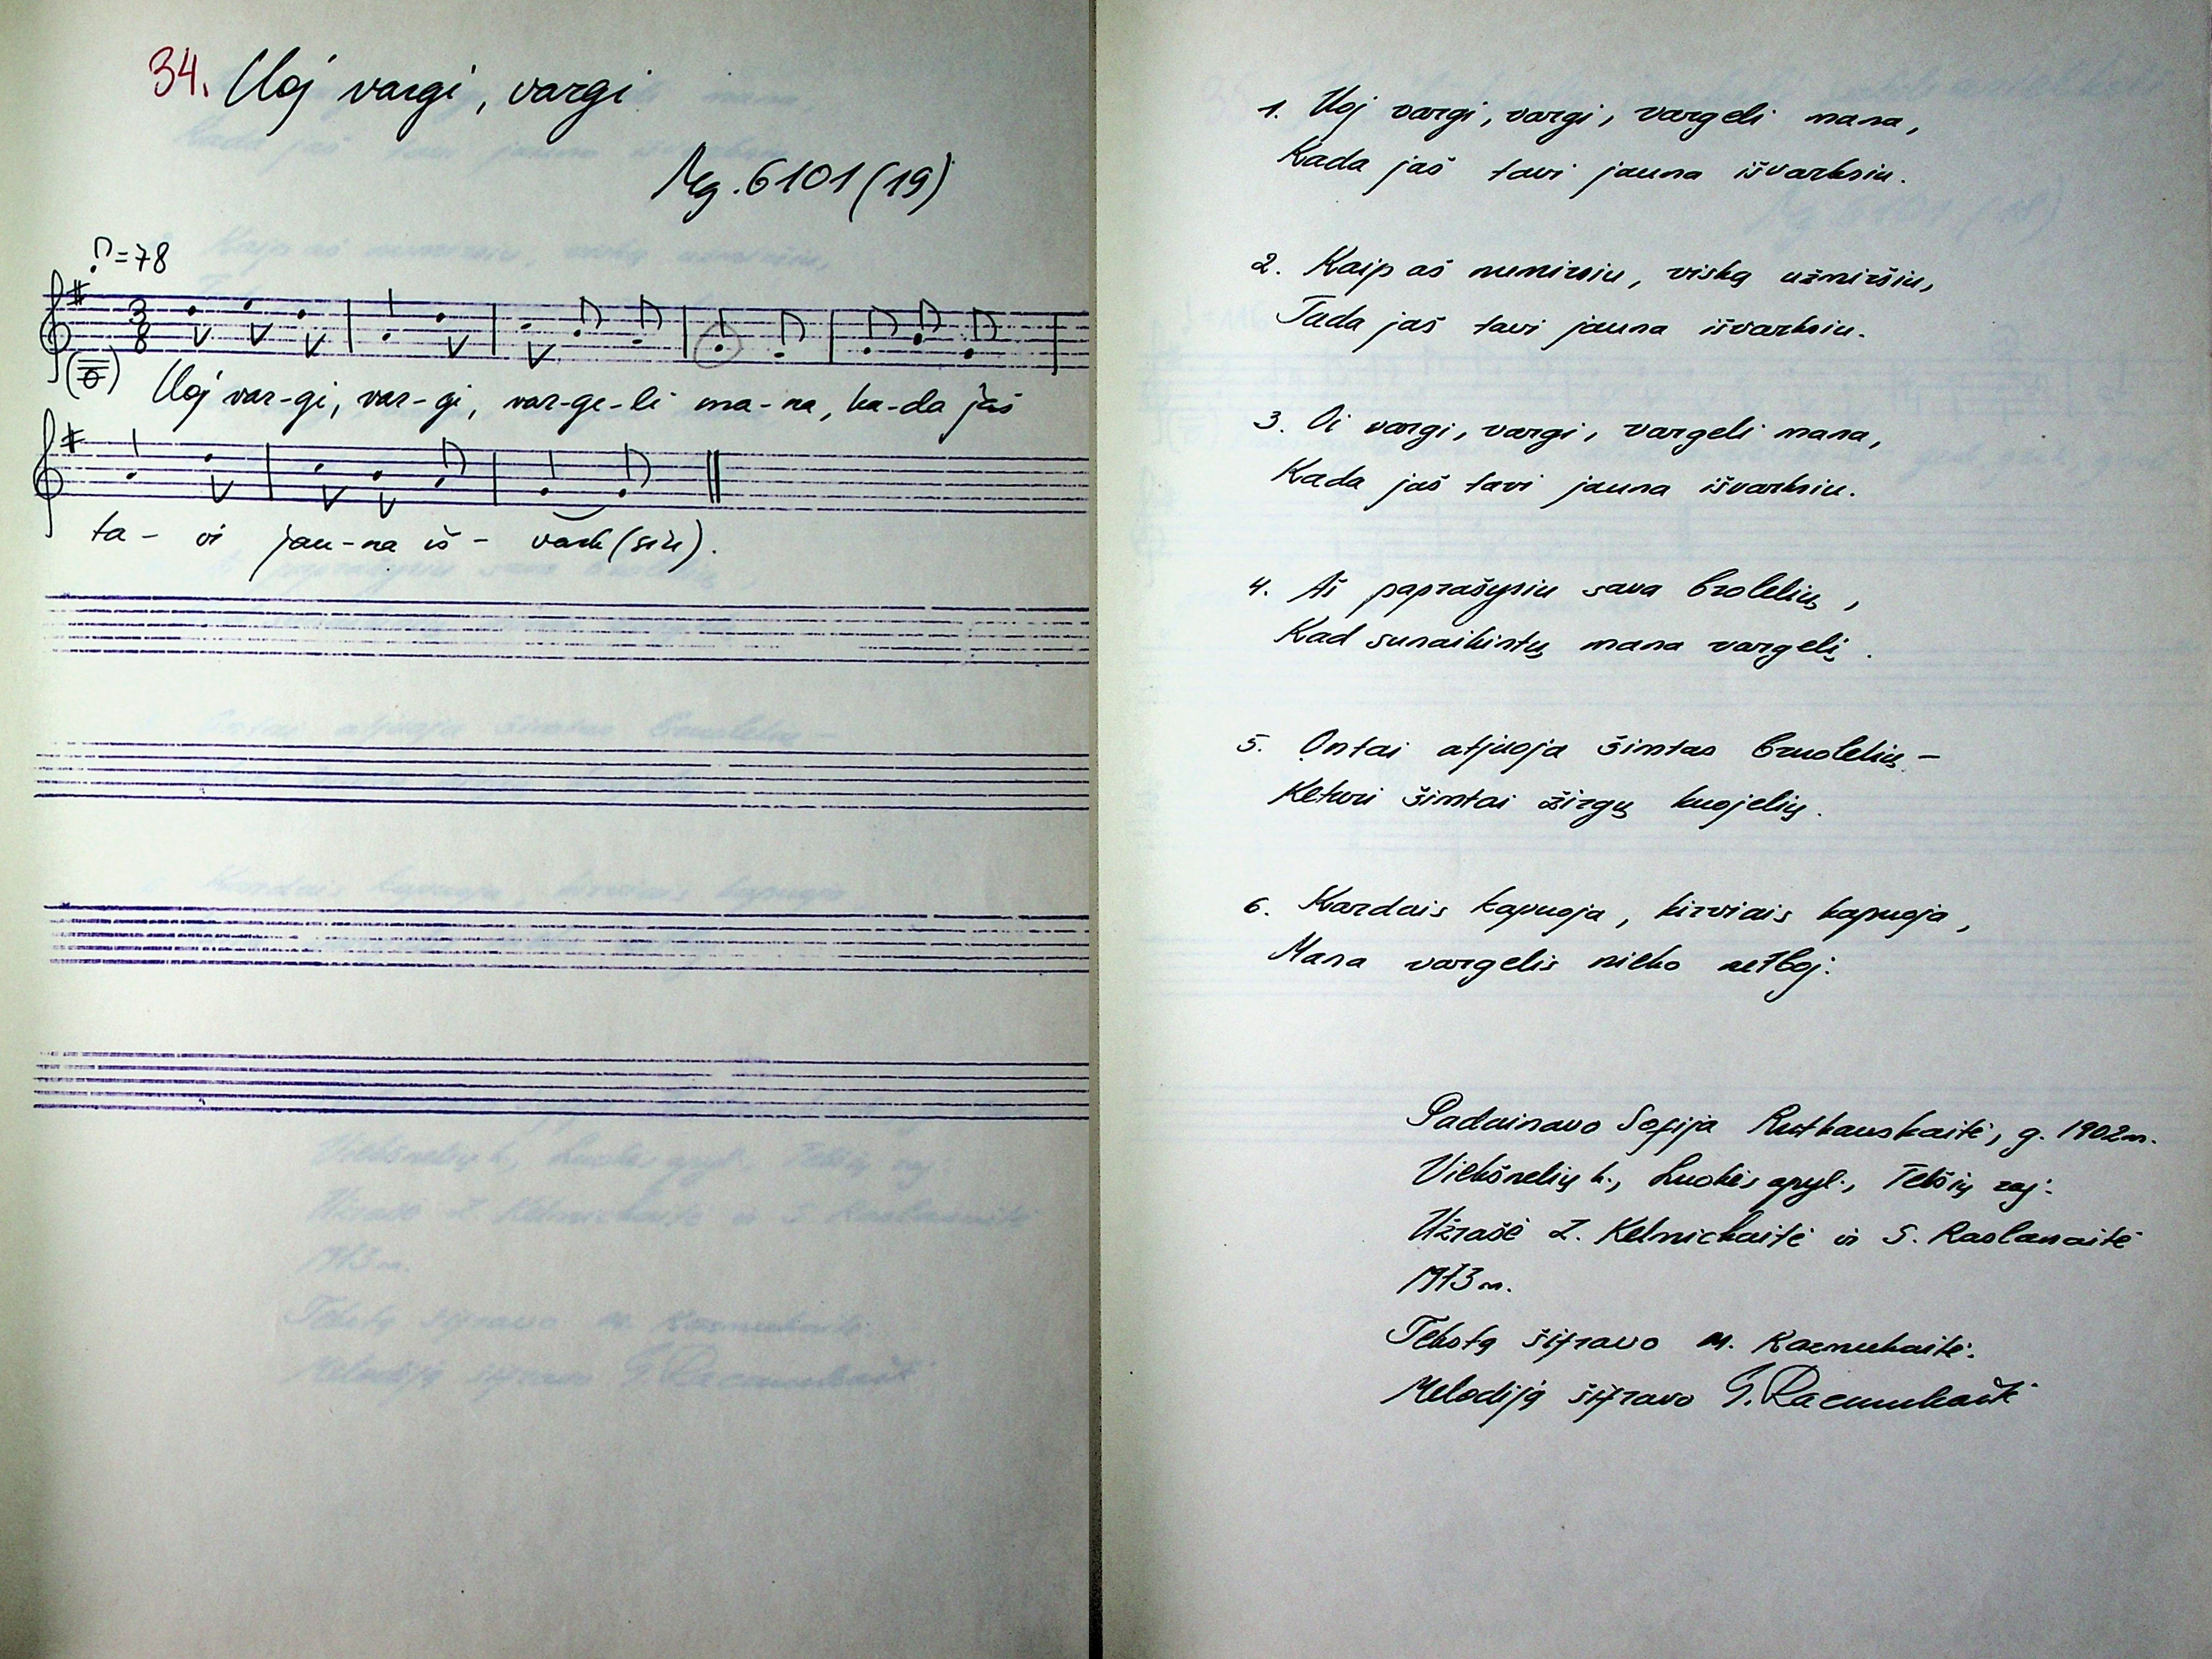 34. Uoj vargi, vargi
Mg. 6101 (19)
♪=78
3
8
Uoj var-gi, var-gi, var-ge-li ma-na, ka-da jaš
ta- vi jau-na iš- vark(siu).
1. Uoj vargi, vargi, vargeli mana,
Kada jaš tavi jauna išvarksiu.
2. Kaip aš numirsiu, viską užmiršiu,
Tada jaš tavi jauna išvarksiu.
3. Oi vargi, vargi, vargeli mana,
Kada jaš tavi jauna išvarksiu.
4. Aš paprašysiu sava brolelių,
Kad sunaikintų mana vargelį.
5. Ontai atjuoja šimtas bruolelių –
Keturi šimtai žirgų kuojelių.
6. Kardais kapuoja, kirviais kapuoja,
Mana vargelis nieko netboj.
Padainavo Sofija Rutkauskaitė, g. 1902 m.
Viekšnelių k., Luokės apyl., Telšių raj.
Užrašė Z. Kelmickaitė ir S. Raslanaitė
1973 m.
Tekstą šifravo M. Razmukaitė.
Melodiją šifravo G. Razmukaitė